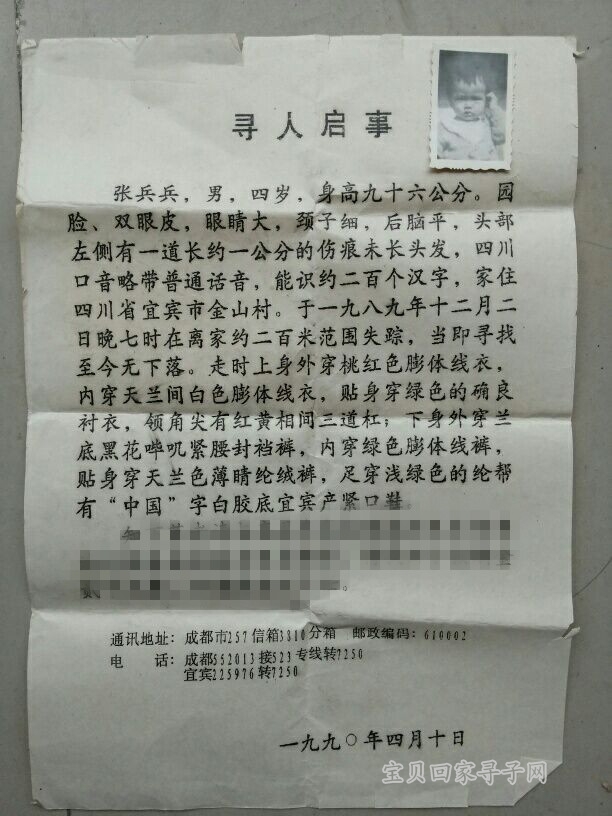 寻人启事
张兵兵，男，四岁，身高九十六公分。园
脸、双眼皮，眼睛大，颈子细，后脑平，头部
左侧有一道长约一公分的伤痕未长头发，四川
口音略带普通话音，能识约二百个汉字，家住
四川省宜宾市金山村。于一九八九年十二月二
日晚七时在离家约二百米范围失踪，当即寻找
至今无下落。走时上身外穿桃红色膨体线衣，
内穿天兰间白色膨体线衣，贴身穿绿色的确良
衬衣，领角尖有红黄相间三道杠；下身外穿兰
底黑花哔叽紧腰封裆裤，内穿绿色膨体线裤，
贴身穿天兰色薄晴纶绒裤，足穿浅绿色的纶帮
有“中国”字白胶底宜宾产紧口鞋
通讯地址：成都市257信箱3810分箱 邮政编码：610002
电 话：成都552013接523专线转7250
宜宾225976转7250
一九九〇年四月十日
宝贝回家寻子网